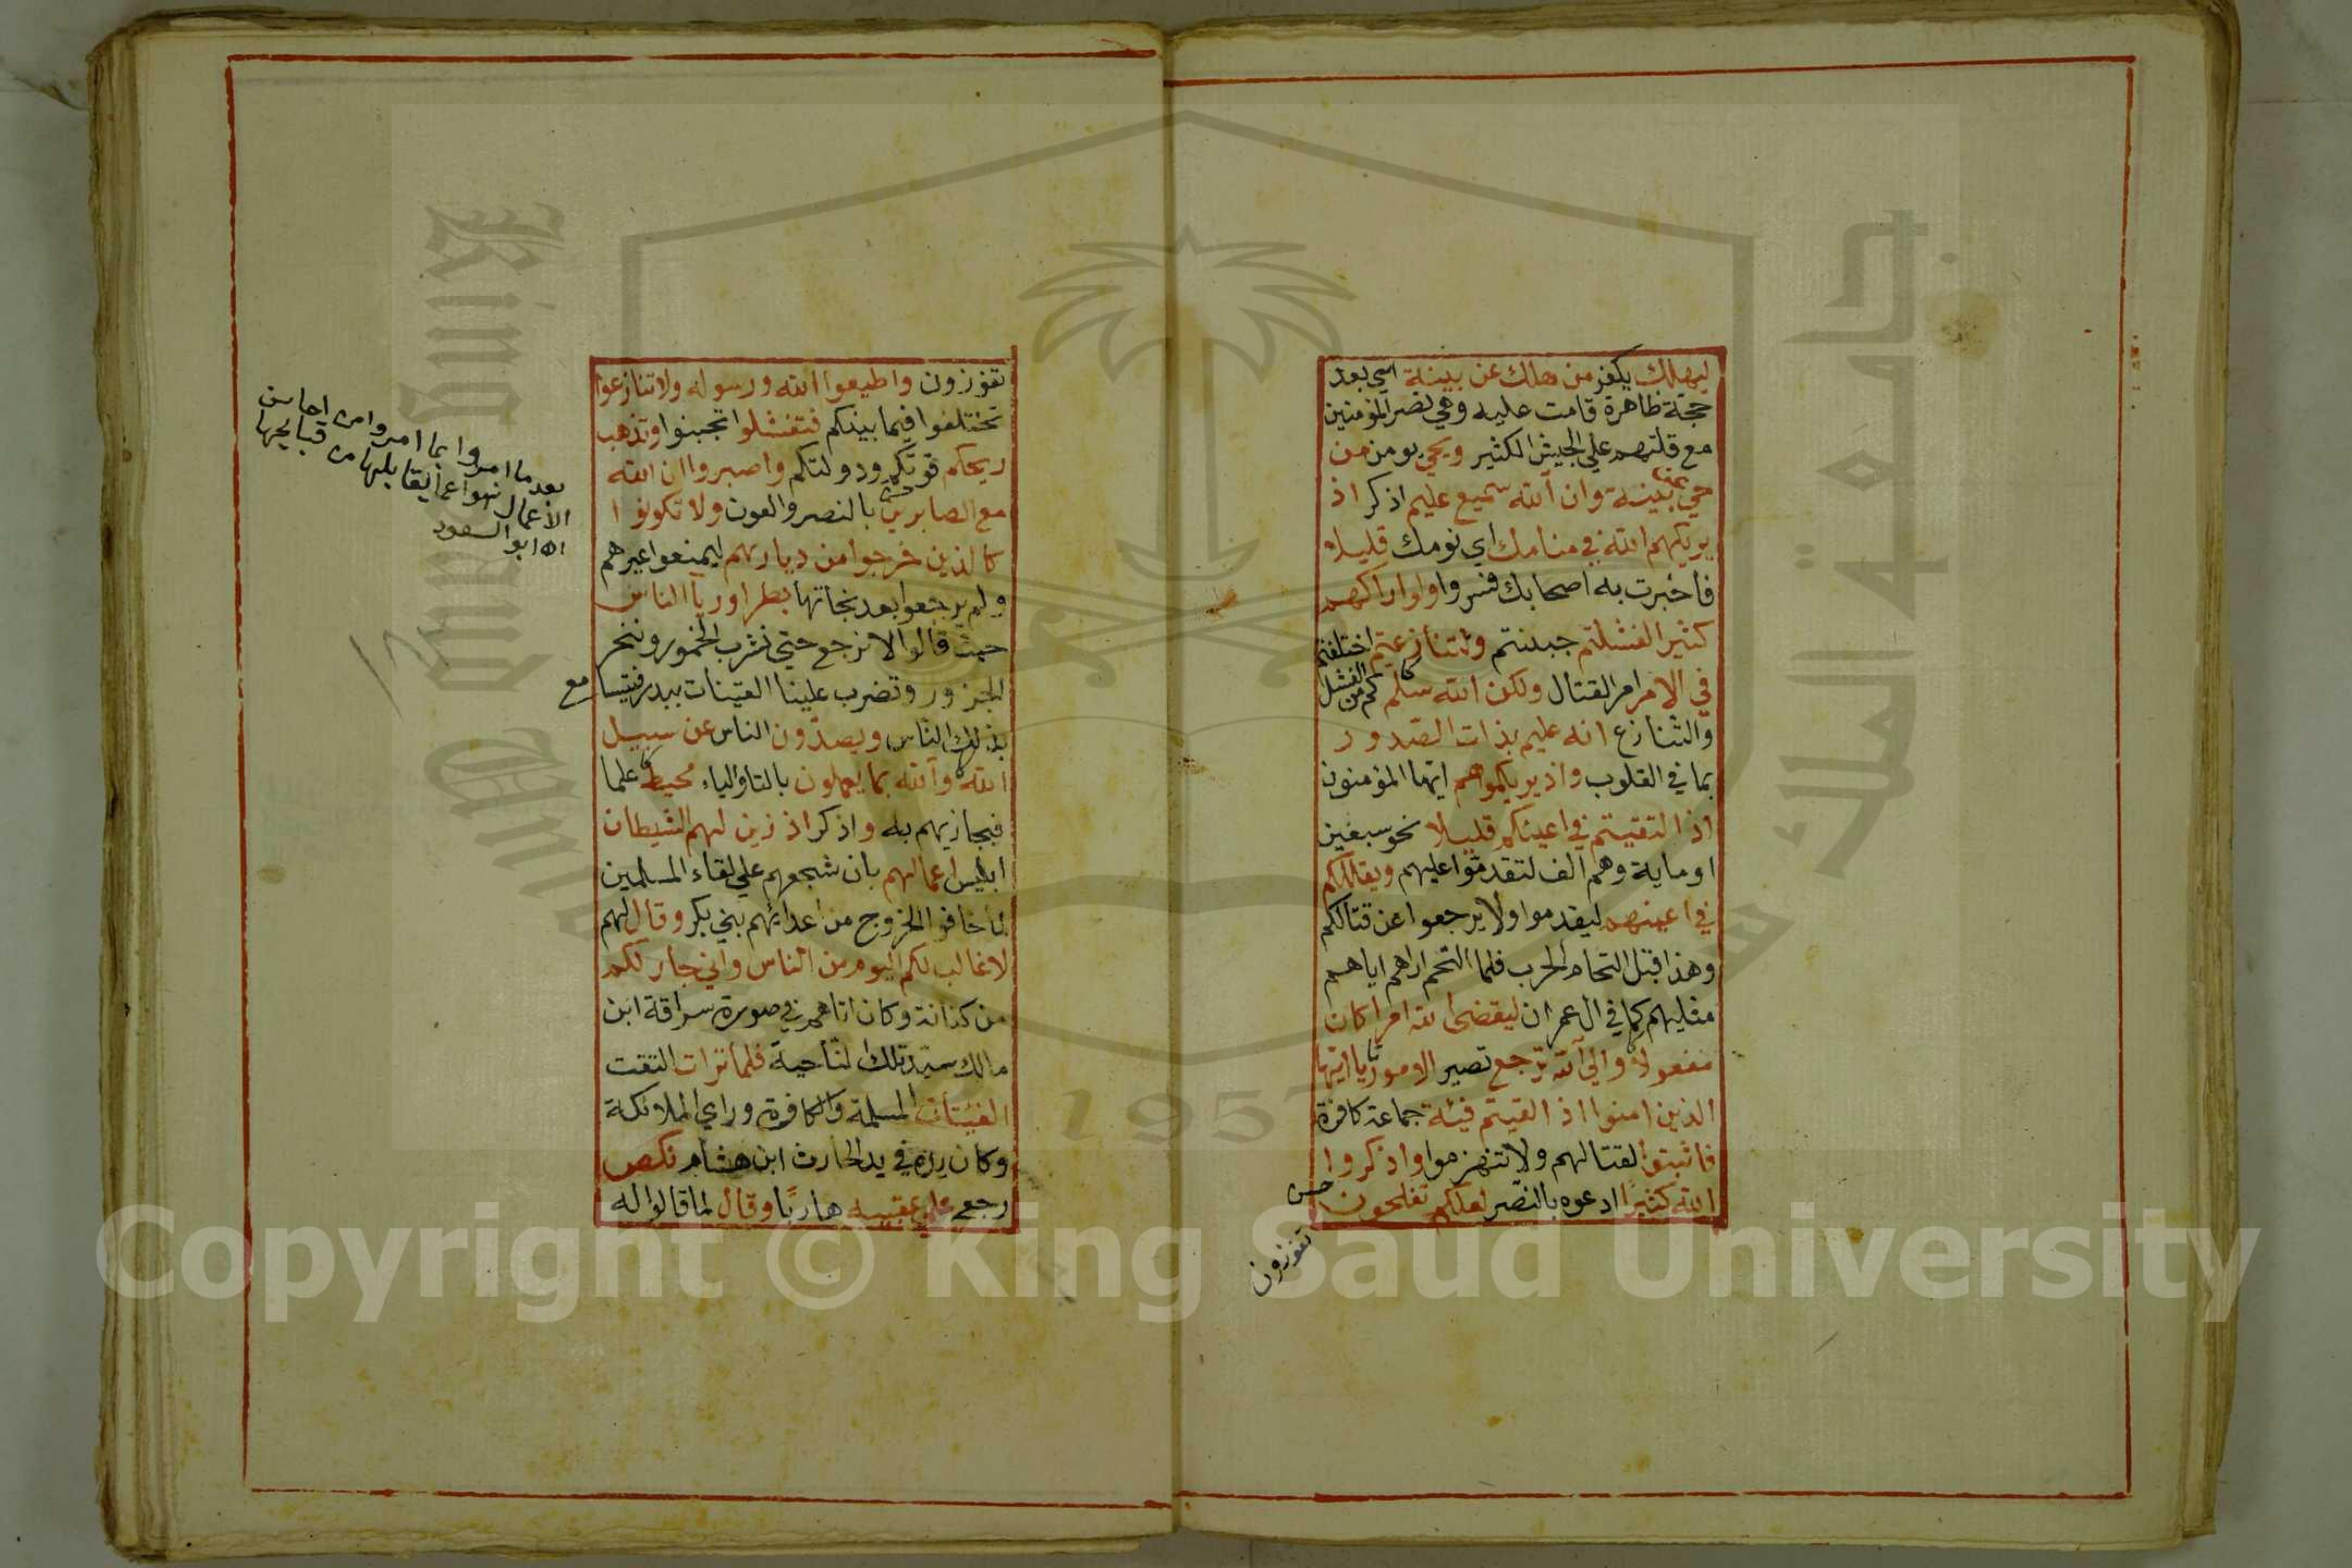 ليهلك يكفر من هلك عن بينة اي بعد
حجة ظاهرة قامت عليه وهي نصر المؤمنين
مع قلتهم علي الجيش الكثير ويحيي يومن من
حي عن بينة وان الله سميع عليم اذكر اذ
يريكهم الله في منامك اي نومك قليلا
فأخبرت به اصحابك فسروا ولو اراكهم
كثيرا لفشلتم جبنتم ولتنازعتم اختلفتم
في الامر امر القتال ولكن الله سلم كم من الفشل
والتنازع انه عليم بذات الصدور
بما في القلوب واذ يريكموهم ايها المؤمنون
اذ التقيتم في اعينكم قليلا نحو سبعين
او ماية وهم الف لتقدموا عليهم ويقللكم
في اعينهم ليقدموا ولا يرجعوا عن قتالكم
وهذا قبل التحام الحرب فلما التحم اراهم اياهم
مثليهم كما في ال عمران ليقضي الله امرا كان
مفعولا والي الله ترجع تصير الامور يا ايها
الذين امنوا اذا لقيتم فيئة جماعة كافرة
فاثبتوا لقتالهم ولا تنهزموا واذكروا
الله كثيرا ادعوه بالنصر لعلكم تفلحون
تفوزون
تفوزون واطيعوا الله ورسوله ولا تنازعوا
تختلفوا فيما بينكم فتفشلوا تجبنوا وتذهب
ريحكم قوتكم ودولتكم واصبروا ان الله
مع الصابرين بالنصر والعون ولا تكونوا
كالذين خرجوا من ديارهم ليمنعوا عيرهم
ولم يرجعوا بعد نجاتها بطرا وريآ الناس
حيث قالوا لا نرجع حتي نشرب الخمور وننحر
الجزور وتضرب علينا القينات ببدر فيتسامع
بذلك الناس ويصدون الناس عن سبيل
الله والله بما يعملون بالتا والياء محيط علما
فيجازيهم به واذكر اذ زين لهم الشيطان
ابليس اعمالهم بان شجعهم علي لقاء المسلمين
لما خافوا الخروج من اعدائهم بني بكر وقال لهم
لا غالب لكم اليوم من الناس واني جار لكم
من كنانة وكان اتاهم في صورة سراقة ابن
مالك سيد تلك الناحية فلما ترات التقت
الفيئتان المسلمة والكافرة وراي الملائكة
وكان يده في يد الحارث ابن هشام نكص
رجع علي عقبيه هاربا وقال لما قالوا له
بعد ما امروا بما امروا من احاسن
الأعمال نهوا عما يقابلها من قبائحها
اه ابو السعود
Copyright © King Saud University
جامعة الملك سعود
King Saud University
1957